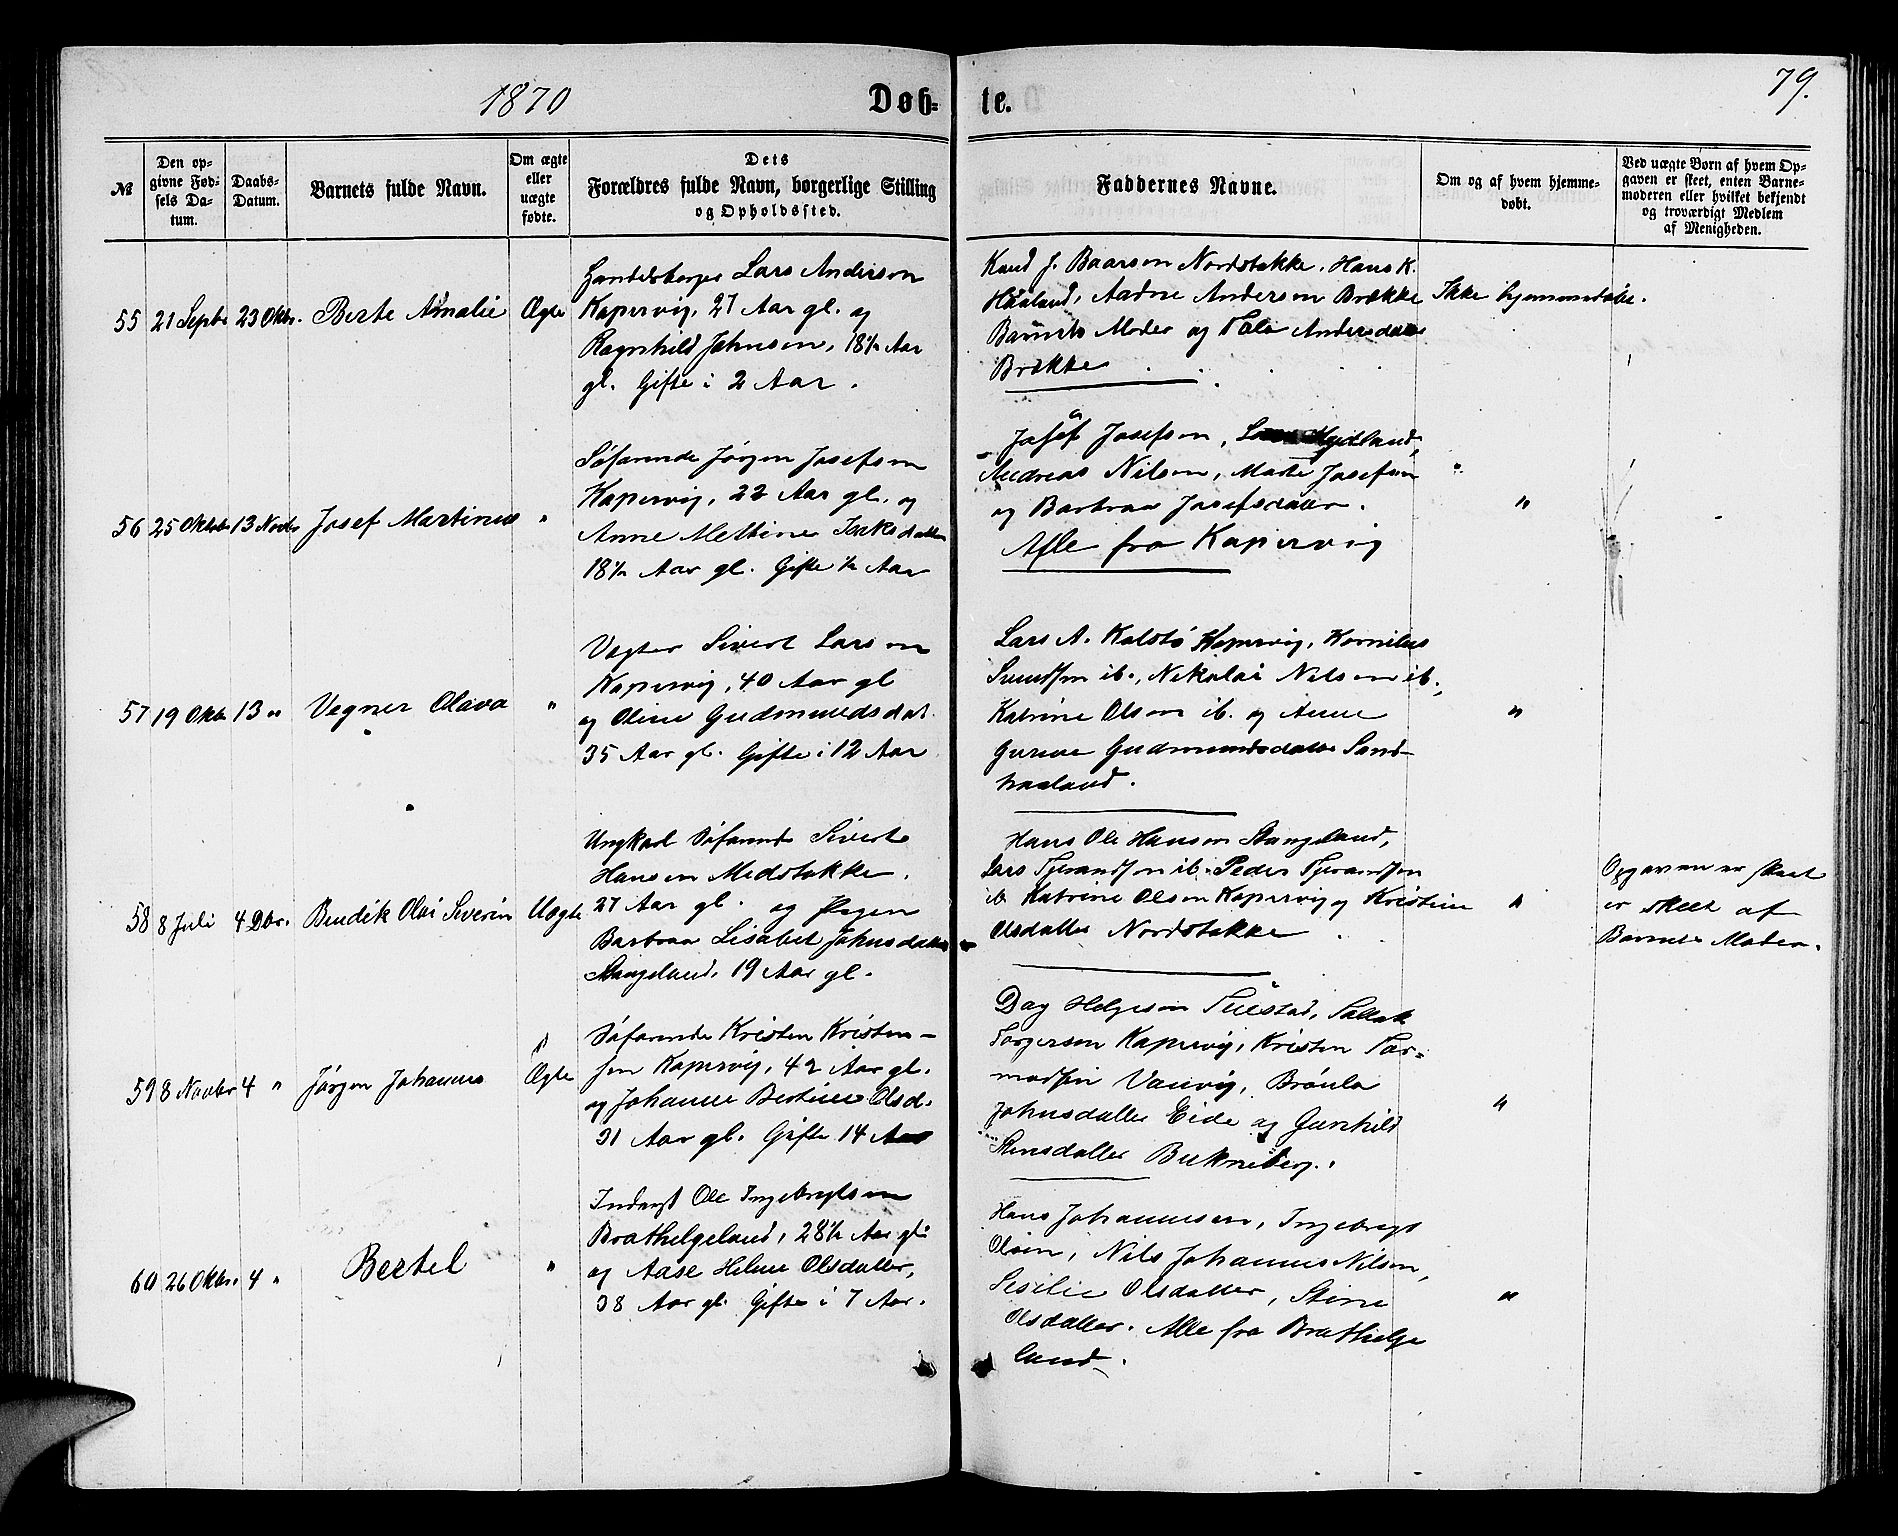 1870
Døb-
te.
79.
№
Den op-
givne Fød-
sels Da-
tum.
Daabs-
Datum.
Barnets fulde Navn.
Om ægte
eller
uægte
fødte.
Dets
Forældres fulde Navn, borgerlige Stilling
og Opholdssted.
Faddernes Navne.
Om og af hvem hjemme-
døbt.
Ved uægte Børn af hvem Op-
gaven er skeet, enten Barne-
moderen eller hvilket bekjendt
og troværdigt Medlem
af Menigheden.
55 21 Septr 23 Oktr. Berte Amalie Ægte
Handelsborger Lars Anderson
Kopervig, 27 Aar gl. og
Ragnhild Johnsen, 18½ Aar
gl. Gifte i 2 Aar.
Knud J. Baarsen Nordstokke, Hans K.
Haaland, Aadne Anderson Brekke
Barnets Moder og Andersdatter
Brekke
Ikke hjemmedøbt.
56 25 Oktob 13 Novbr Josef Martinus "
Søfarende Jørgen Josefson
Kopervig, 22 Aar gl. og
Anne Mettine Isaksdatter
18½ Aar gl. Gifte ½ Aar
Josef Josefson, Hydland,
Andreas Nilsen, Marte Josefsen
og Barbraa Josefsdatter.
Alle fra Kopervig
"
57 19 Oktb 13 " Vegner Olava "
Vegter Sivert Larsen
Kopervig, 40 Aar gl
og Oline Gudmundsdat.
35 Aar gl. Gifte i 12 Aar
Lars A. Kolstø Kopervig, Kornilius
Svendsen ib., Nikolai Nilsen ib.,
Katrine Olsen ib. og Anne
Gurine Gudmundsdatter Sand-
haaland.
"
58 8 Juli 4 Dbr. Bendik Olai Severin Uægte
Ungkarl Søfarende Sivert
Hansen Medstokke.
27 Aar gl. og Pigen
Barbraa Lisabet Johnsdatter
Stangeland, 19 Aar gl.
Hans Ole Hansen Stangeland,
Lars Tjerandsen ib. Peder Tjerandsen
ib. Katrine Olsen Kopervig og Kristine
Olsdatter Nordstokke
"
Opgaven er skeet
er skeet af
Barnets Moder.
59 8 Novbr 4 " Jørgen Johannes Ægte
Søfarende Kristen Kristen-
sen Kopervig, 42 Aar gl.
og Johanne Bertine Olsd.
31 Aar gl. Gifte 14 Aar
Dag Helgeson Tuestad, Sallak
Torgersen Kopervig, Kristen Tor-
modsen Vanvig, Brønla
Johnsdatter Eide og Gunhild
Stensdatter Bukneberg.
"
60 26 Oktbr. 4 " Bertel "
Inderst Ole Ingebrigtsen
Brathelgeland, 28½ Aar gl.
og Aase Heline Olsdatter,
38 Aar gl. Gifte i 7 Aar.
Hans Johannesen, Ingebrigt
Olsen, Nils Johannes Nilsen,
Sesilie Olsdatter, Stine
Olsdatter. Alle fra Brathelge
land.
"